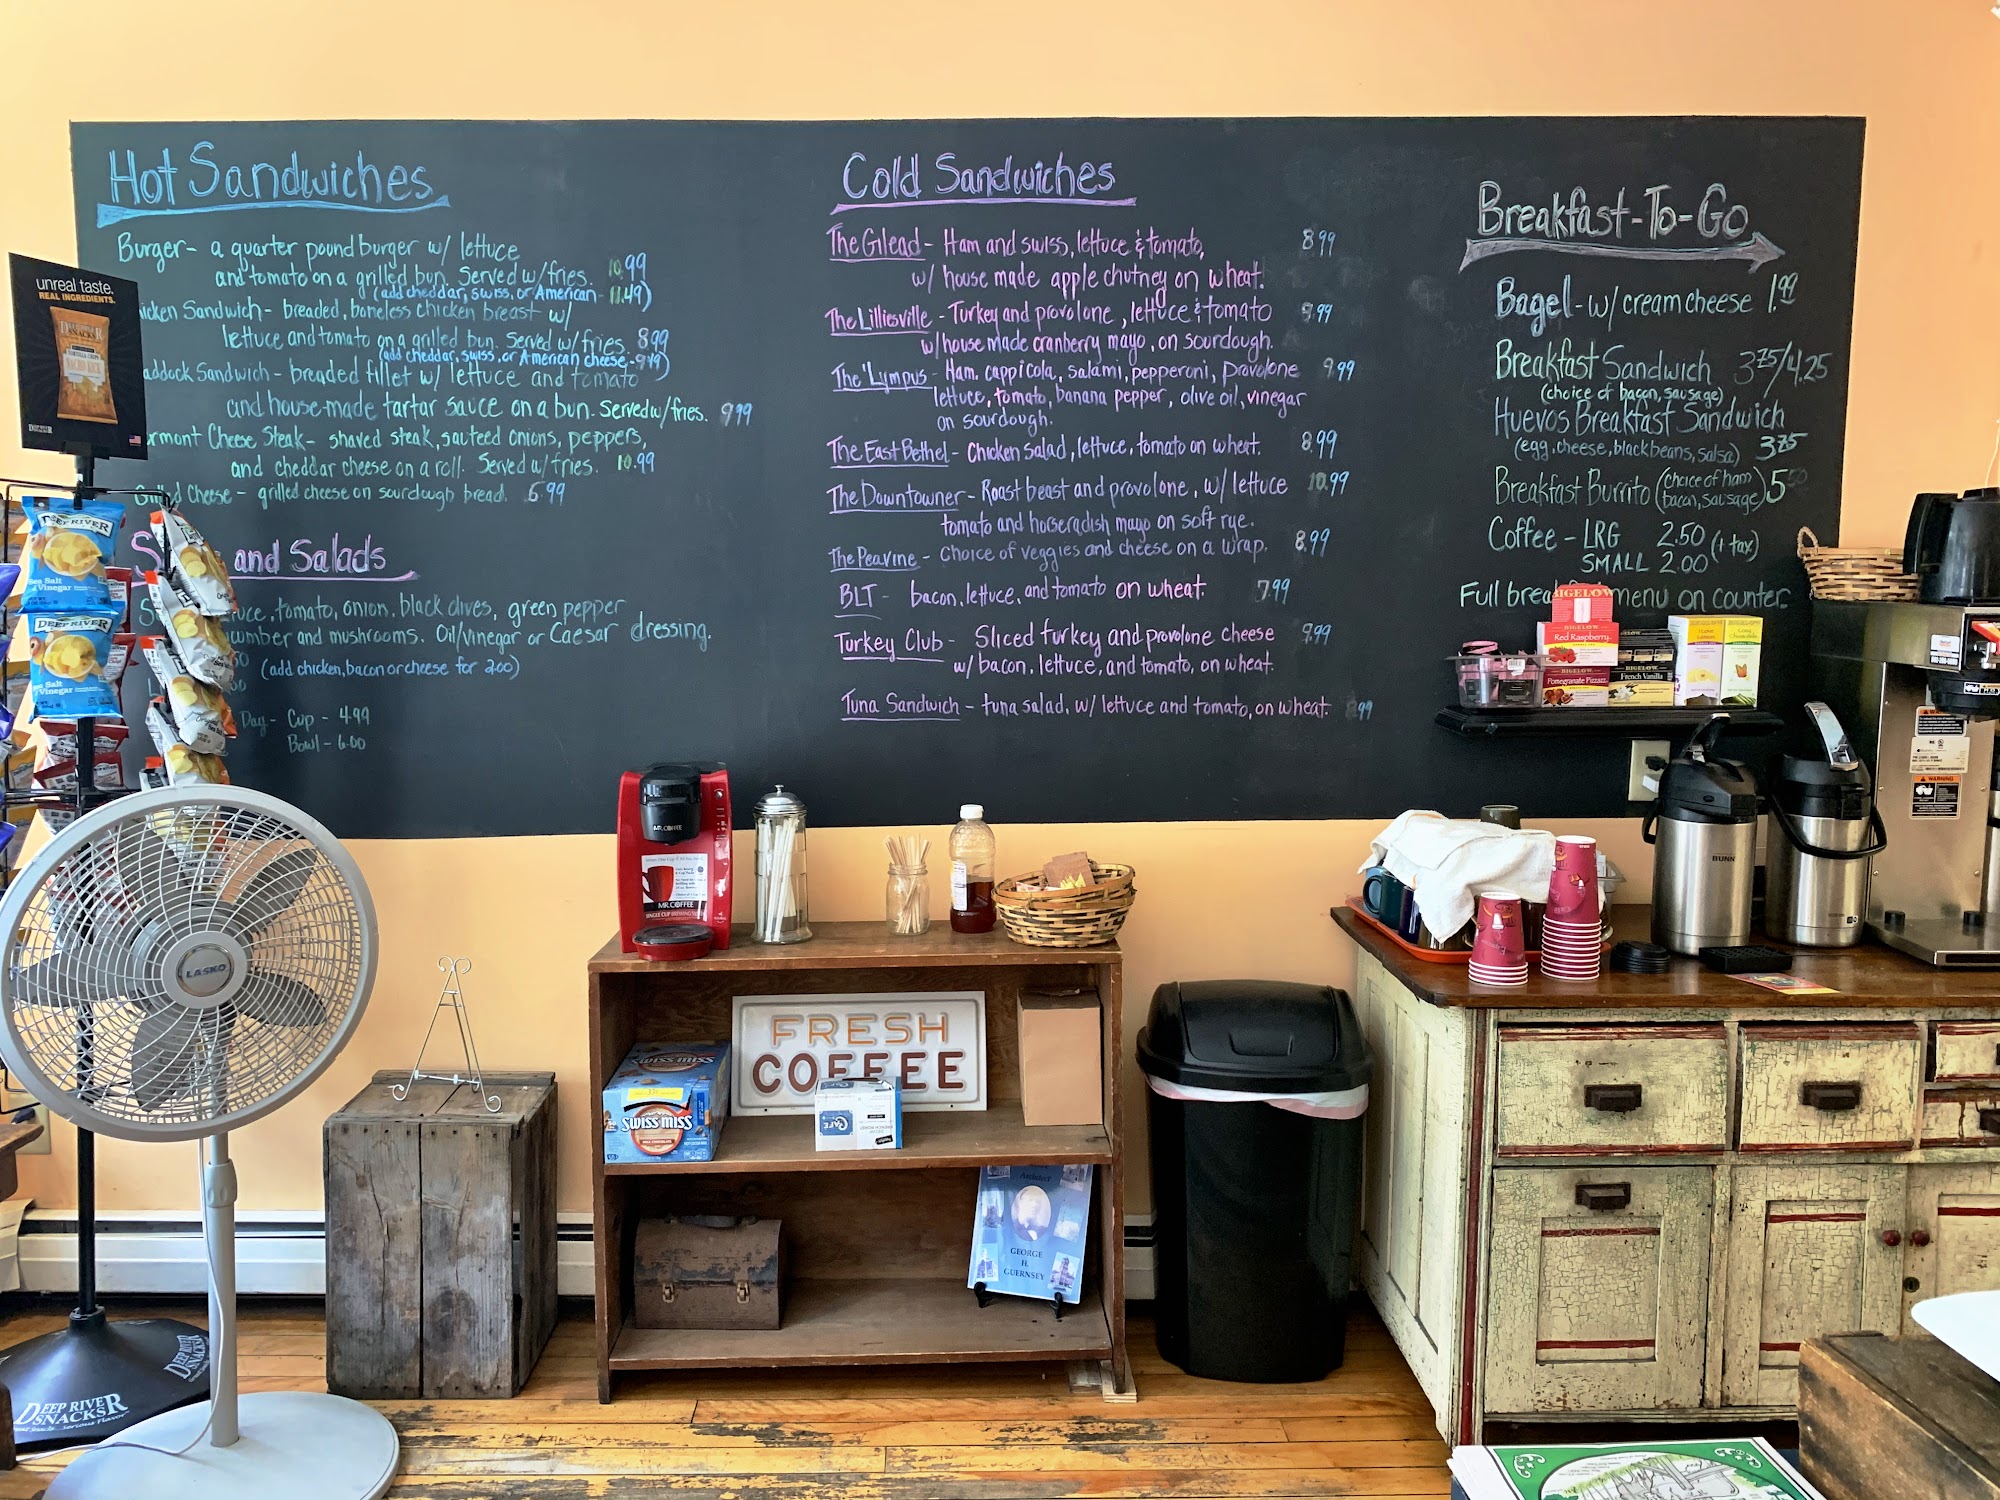 Hot Sandwiches
Burger - a quarter pound burger w/ lettuce
and tomato on a grilled bun. Served w/ fries. 10.99
(add cheddar, swiss, or American - 11.49)
icken Sandwich - breaded, boneless chicken breast w/
lettuce and tomato on a grilled bun. Served w/ fries. 8.99
(add cheddar, swiss, or American cheese - 9.49)
addock Sandwich - breaded fillet w/ lettuce and tomato
and house-made tartar sauce on a bun. Served w/ fries. 9.99
rmont Cheese Steak - shaved steak, sauteed onions, peppers,
and cheddar cheese on a roll. Served w/ fries. 10.99
Grilled Cheese - grilled cheese on sourdough bread. 6.99
and Salads
uce, tomato, onion, black olives, green pepper
cumber and mushrooms. Oil/vinegar or Caesar dressing.
(add chicken, bacon or cheese for 2.00)
Day - Cup - 4.99
Bowl - 6.00
Cold Sandwiches
The Gilead - Ham and swiss, lettuce & tomato, 8.99
w/ house made apple chutney on wheat.
The Lilliesville - Turkey and provolone, lettuce & tomato 9.99
w/ house made cranberry mayo, on sourdough.
The 'Lympus - Ham, cappicola, salami, pepperoni, provolone 9.99
lettuce, tomato, banana pepper, olive oil, vinegar
on sourdough.
The East Bethel - Chicken Salad, lettuce, tomato on wheat. 8.99
The Downtowner - Roast beast and provolone, w/ lettuce 10.99
tomato and horseradish mayo on soft rye.
The Peavine - Choice of veggies and cheese on a wrap. 8.99
BLT - bacon, lettuce, and tomato on wheat. 7.99
Turkey Club - Sliced turkey and provolone cheese 9.99
w/ bacon, lettuce, and tomato, on wheat.
Tuna Sandwich - tuna salad, w/ lettuce and tomato, on wheat. 8.99
Breakfast-To-Go
Bagel - w/ cream cheese 1.99
Breakfast Sandwich 3.75/4.25
(choice of bacon, sausage)
Huevos Breakfast Sandwich
(egg, cheese, black beans, salsa) 3.75
Breakfast Burrito (choice of ham
bacon, sausage) 5.50
Coffee - LRG 2.50 (+ tax)
SMALL 2.00
Full breakfast menu on counter.
unreal taste.
REAL INGREDIENTS.
DEEP RIVER
SNACKS
DEEP RIVER
Sea Salt
& Vinegar
DEEP RIVER
LASKO
DEEP RIVER
SNACKS
DEEP RIVER
SNACKS
MR. COFFEE
MR. COFFEE
SINGLE CUP BREWING SYSTEM
FRESH
COFFEE
SWISS MISS
SWISS MISS
CAFE
Architect
GEORGE
H.
GUERNSEY
BIGELOW
BIGELOW
Red Raspberry
BIGELOW
Pomegranate Pizzazz
BIGELOW
French Vanilla
BUNN
WARNING